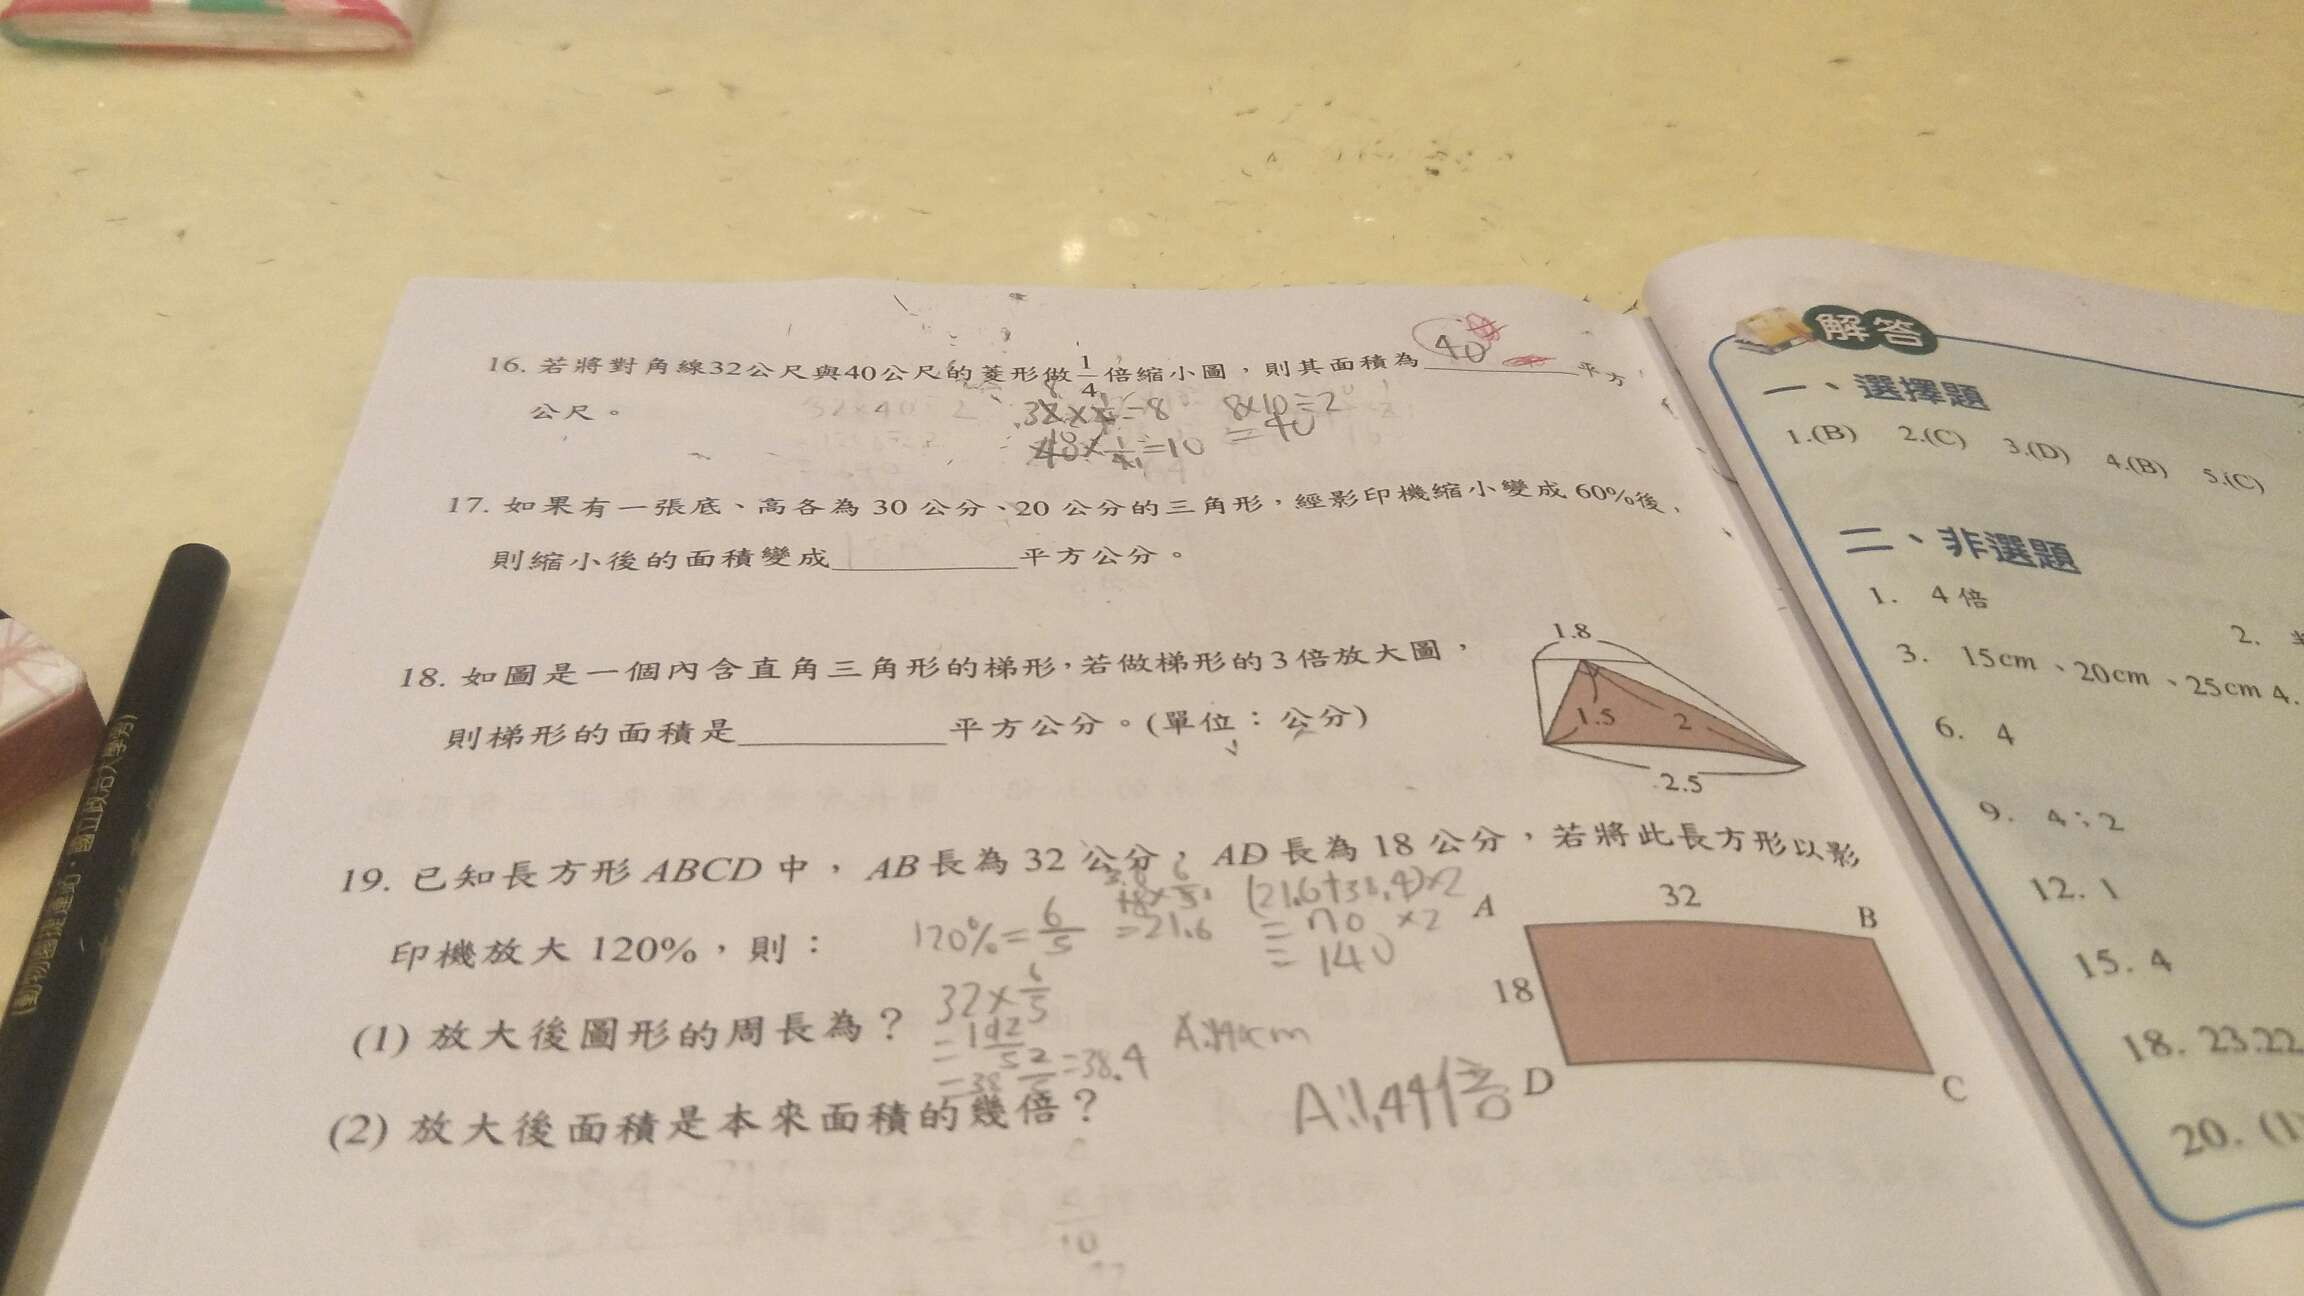 16. 若將對角線32公尺與40公尺的菱形做1/4倍縮小圖，則其面積為 40 平方
公尺。
32×1/4=8
40×1/4=10
8×10÷2
=40
17. 如果有一張底、高各為 30 公分、20 公分的三角形，經影印機縮小變成 60%後，
則縮小後的面積變成__________平方公分。
18. 如圖是一個內含直角三角形的梯形，若做梯形的3倍放大圖，
則梯形的面積是__________平方公分。(單位：公分)
1.8
1.5
2
2.5
19. 已知長方形 ABCD 中，AB 長為 32 公分，AD 長為 18 公分，若將此長方形以影
印機放大 120%，則：
120%=6/5
18×6/5
=21.6
(21.6+38.4)×2
=70×2
=140
(1) 放大後圖形的周長為？
32×6/5
=192/5
=38 2/5=38.4
(2) 放大後面積是本來面積的幾倍？
A:1.44倍
A
32
B
18
D
C
解答
一、選擇題
1.(B) 2.(C) 3.(D) 4.(B) 5.(C)
二、非選擇題
1. 4倍
2.
3. 15cm、20cm、25cm 4.
6. 4
9. 4:2
12. 1
15. 4
18. 23.22
20. (1)
國立政治大學